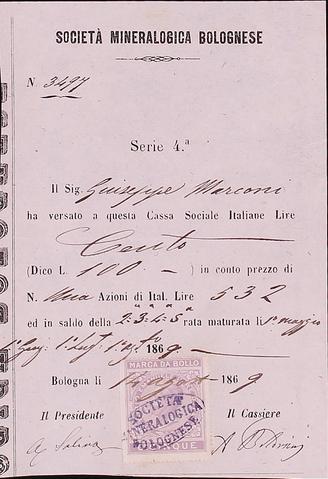 SOCIETÀ MINERALOGICA BOLOGNESE
N. 3497
Serie 4.ª
Il Sig. Giuseppe Marconi
ha versato a questa Cassa Sociale Italiane Lire
Cento
(Dico L. 100 —) in conto prezzo di
N. Una Azioni di Ital. Lire 532
ed in saldo della 2ª 3ª 4ª 5ª rata maturata li 1º maggio
186 9
MARCA DA BOLLO
Bologna li 14 agosto 186 9
SOCIETÀ
MINERALOGICA
BOLOGNESE
Il Presidente Il Cassiere